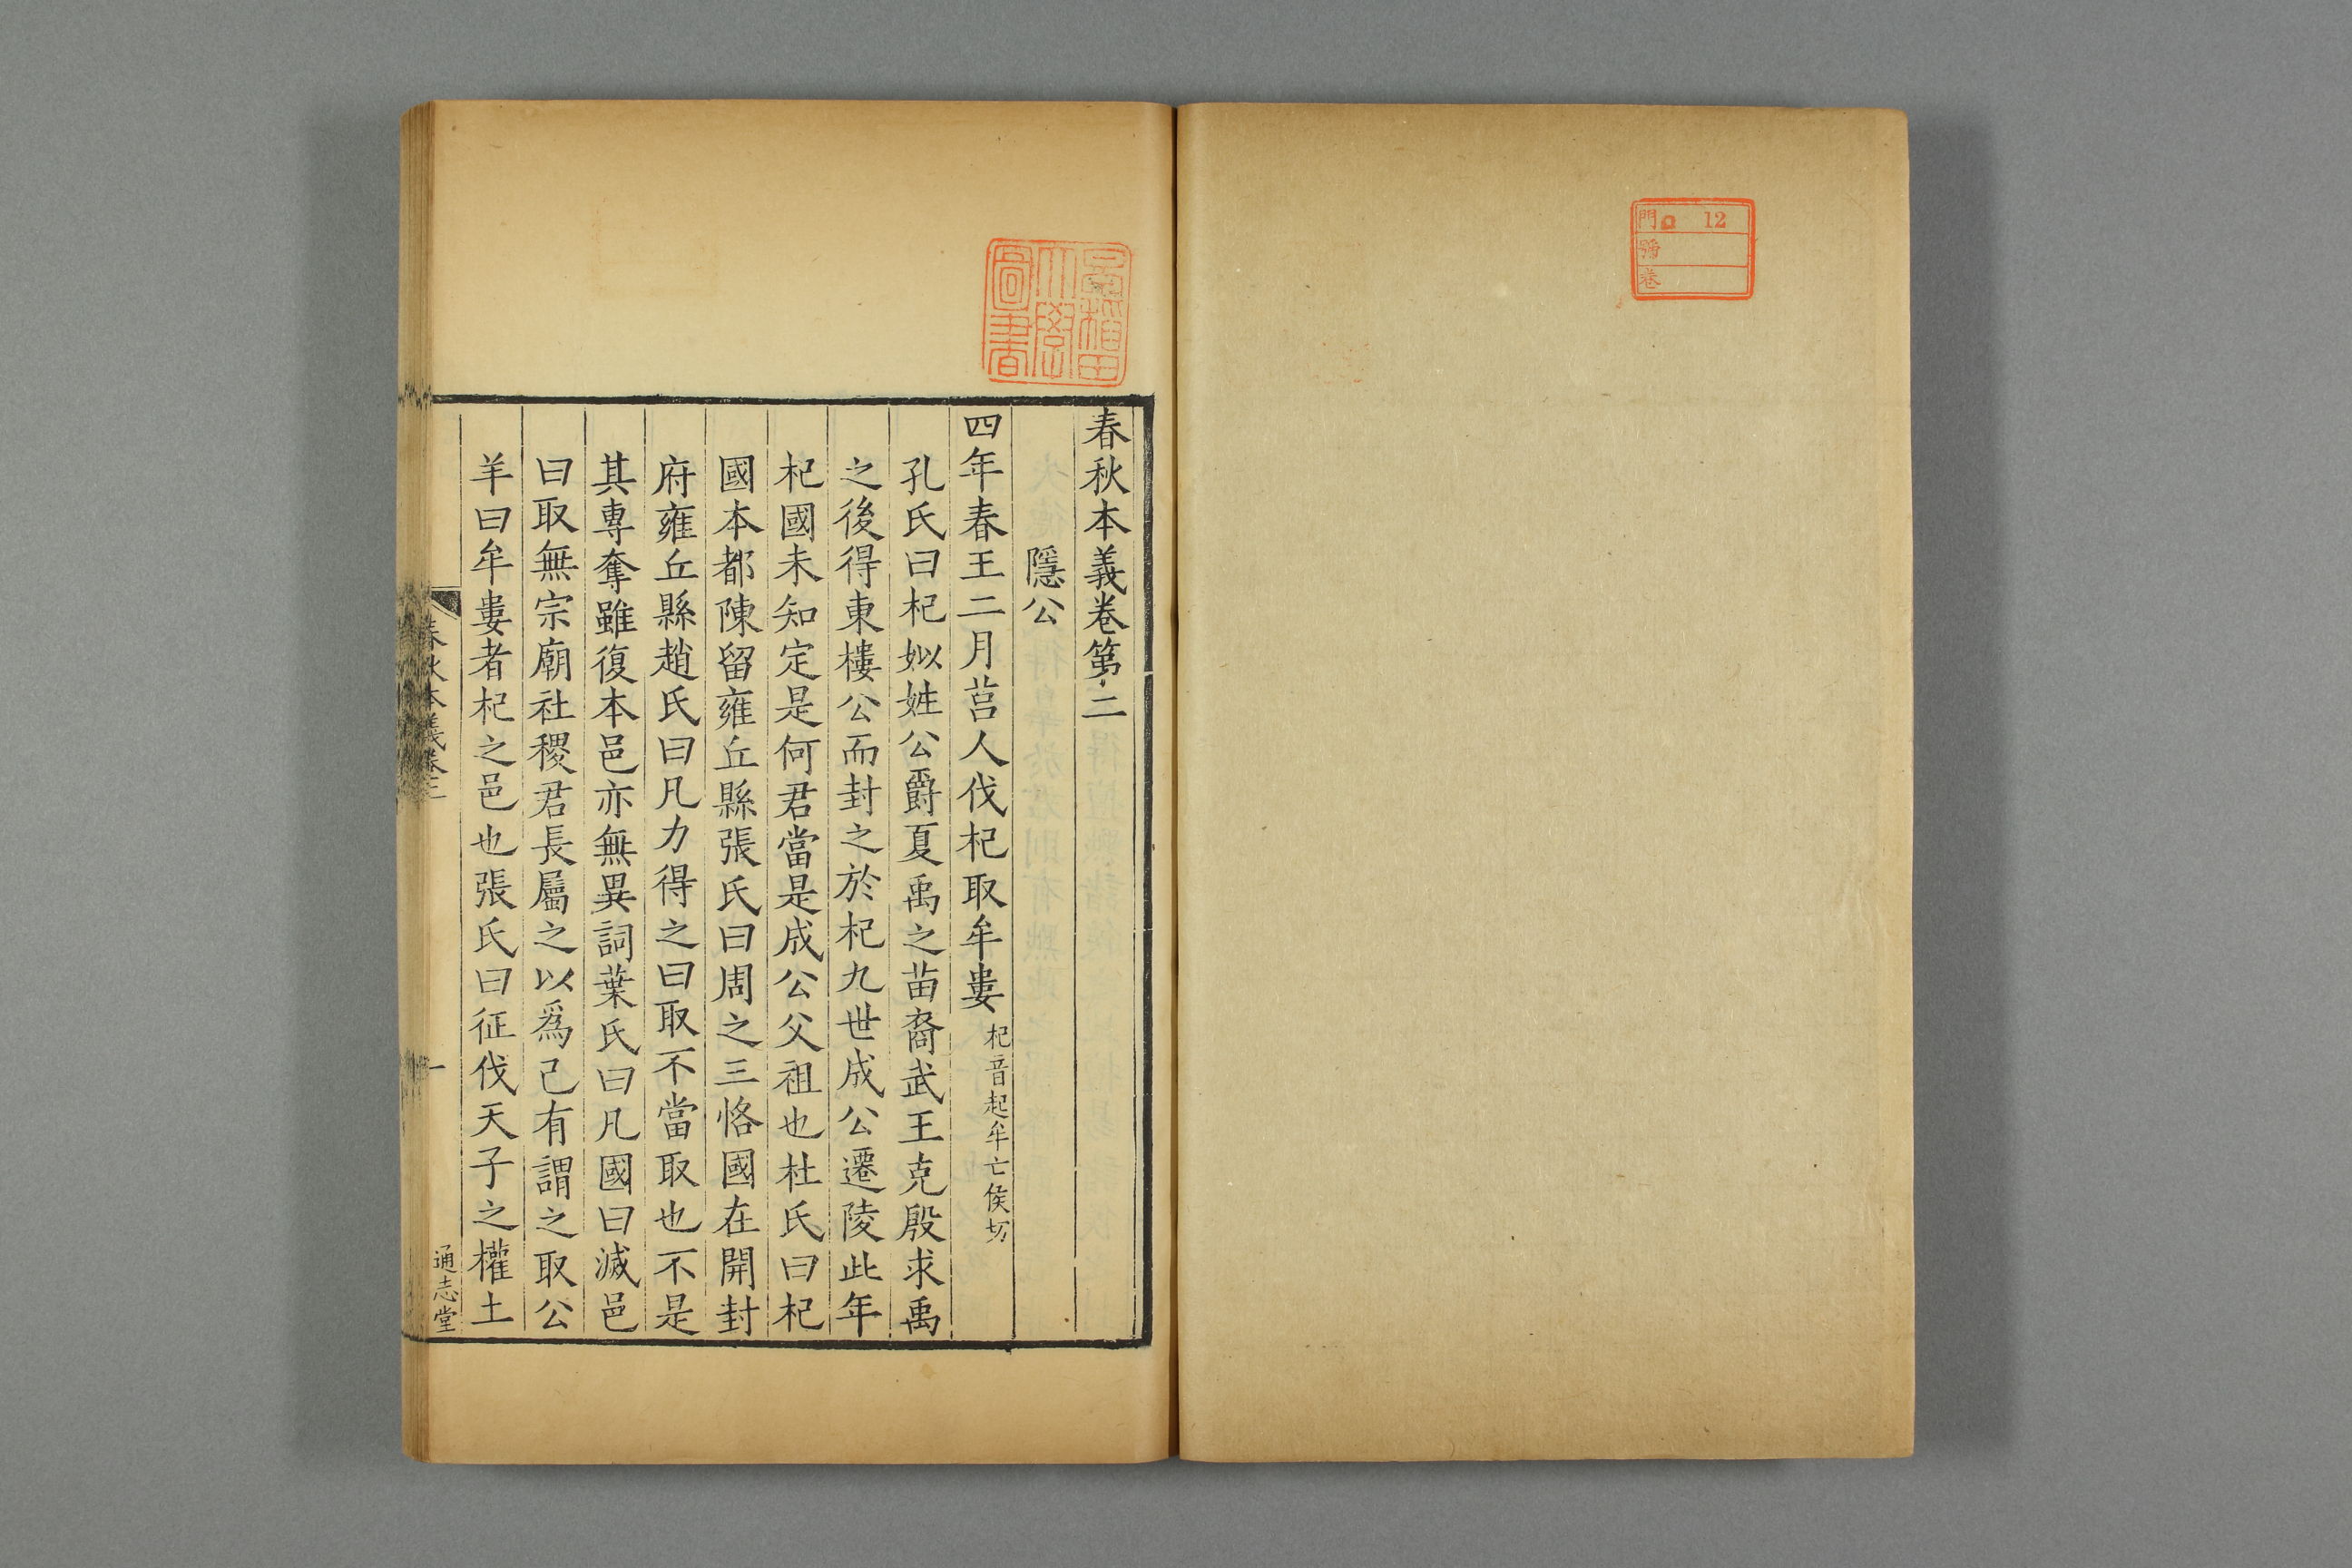 門 12
號
卷
早稻田
大學
圖書
春秋本義卷第二
隱公
四年春王二月莒人伐杞取牟婁 杞音起牟亡侯切
孔氏曰杞姒姓公爵夏禹之苗裔武王克殷求禹
之後得東樓公而封之於杞九世成公遷陵此年
杞國未知定是何君當是成公父祖也杜氏曰杞
國本都陳留雍丘縣張氏曰周之三恪國在開封
府雍丘縣趙氏曰凡力得之曰取不當取也不是
其專奪雖復本邑亦無異詞葉氏曰凡國曰滅邑
曰取無宗廟社稷君長屬之以爲己有謂之取公
羊曰牟婁者杞之邑也張氏曰征伐天子之權土
春秋本義卷二
一
通志堂